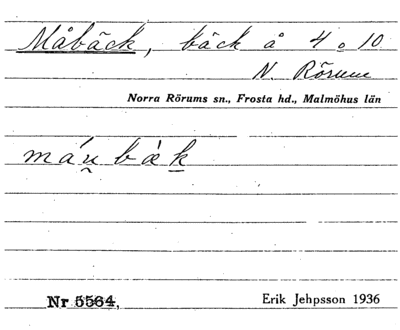 Måbäck, bäck å 4 o 10
N. Rörum
Norra Rörums sn., Frosta hd., Malmöhus län
máu̯ bæ̀k̲
Nr 5564.
Erik Jehpsson 1936